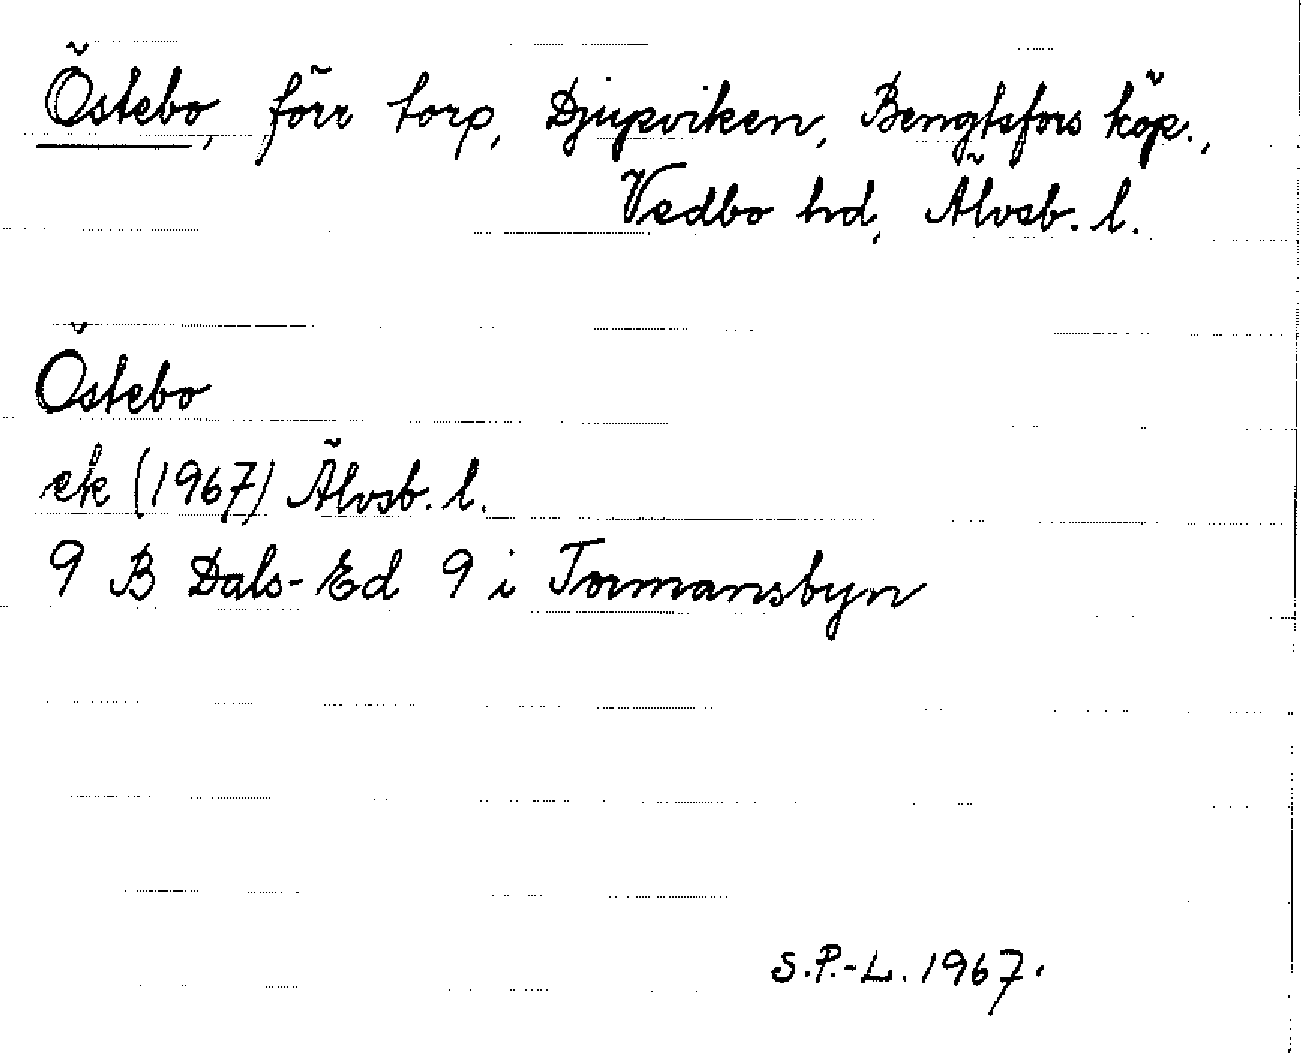 Östebo, förr torp, Djupviken, Bengtsfors köp.,
Vedbo hd, Älvsb. l.
Östebo
ek (1967) Älvsb. l.
9 B Dals-Ed 9 i Tormansbyn
S.P.-L. 1967.